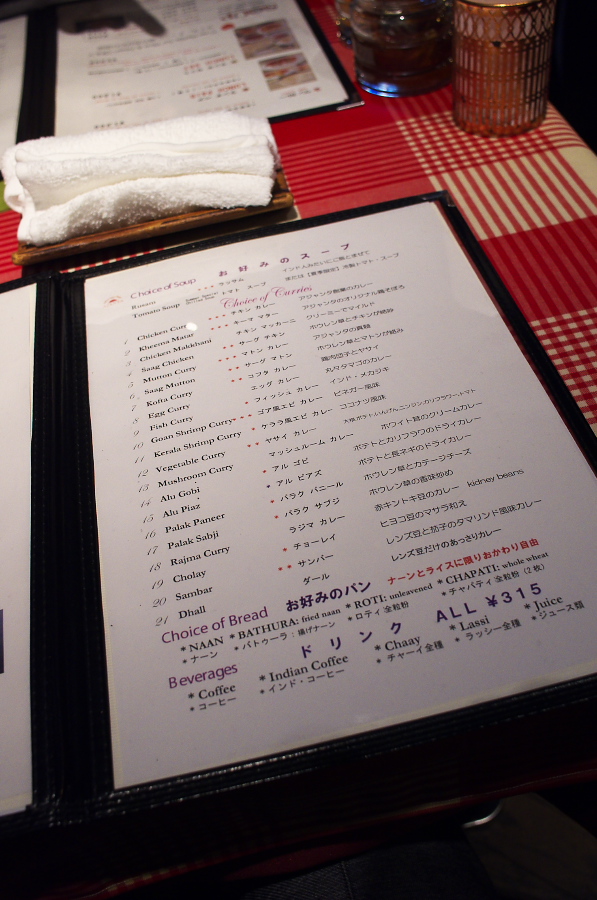 Choice of Soup お好みのスープ
Rasam *** ラッサム インド人みたいにご飯とまぜて
Tomato Soup トマト スープ または【夏季限定】冷製トマト・スープ
Choice of Curries
1 Chicken Curry *** チキン カレー アジャンタ創業のカレー
2 Kheema Matar *** キーマ マター アジャンタのオリジナル鶏そぼろ
3 Chicken Makkhani チキン マッカーニ クリーミーでマイルド
4 Saag Chicken ** サーグ チキン ホウレン草とチキンが絶妙
5 Mutton Curry *** マトン カレー アジャンタの真髄
6 Saag Mutton ** サーグ マトン ホウレン草とマトンが絡み
7 Kofta Curry ** コフタ カレー 鶏肉団子とヤサイ
8 Egg Curry エッグ カレー 丸々タマゴのカレー
9 Fish Curry * フィッシュ カレー インド・メカジキ
10 Goan Shrimp Curry *** ゴア風エビ カレー ビネガー風味
11 Kerala Shrimp Curry * ケララ風エビ カレー ココナツ風味
12 Vegetable Curry ** ヤサイ カレー
13 Mushroom Curry マッシュルーム カレー ホワイト種のクリームカレー
14 Alu Gobi * アル ゴビ ポテトとカリフラワのドライカレー
15 Alu Piaz * アル ピアズ ポテトと長ネギのドライカレー
16 Palak Paneer * パラク パニール ホウレン草とカテージチーズ
17 Palak Sabji * パラク サブジ ホウレン草の香味炒め
18 Rajma Curry ラジマ カレー 赤キントキ豆のカレー kidney beans
19 Cholay * チョーレイ ヒヨコ豆のマサラ和え
20 Sambar ** サンバー レンズ豆と茄子のタマリンド風味カレー
21 Dhall ダール レンズ豆だけのあっさりカレー
Choice of Bread お好みのパン ナーンとライスに限りおかわり自由
* NAAN * BATHURA: fried naan * ROTI: unleavened * CHAPATI: whole wheat
* ナーン * バトゥーラ：揚げナーン * ロティ 全粒粉 * チャパティ 全粒粉（2枚）
Beverages ドリンク ALL ¥315
* Coffee * Indian Coffee * Chaay * Lassi * Juice
* コーヒー * インド・コーヒー * チャーイ全種 * ラッシー全種 * ジュース類